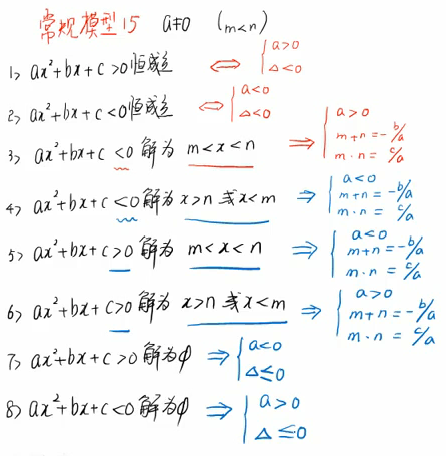 常规模型15 a≠0 (m<n)
1) ax²+bx+c>0恒成立 ⇔ { a>0 Δ<0
2) ax²+bx+c<0恒成立 ⇔ { a<0 Δ<0
3) ax²+bx+c<0解为 m<x<n ⇒ { a>0 m+n=-b/a m·n=c/a
4) ax²+bx+c<0解为x>n或x<m ⇒ { a<0 m+n=-b/a m·n=c/a
5) ax²+bx+c>0解为 m<x<n ⇒ { a<0 m+n=-b/a m·n=c/a
6) ax²+bx+c>0解为 x>n 或x<m ⇒ { a>0 m+n=-b/a m·n=c/a
7) ax²+bx+c>0解为φ ⇒ { a<0 Δ≤0
8) ax²+bx+c<0解为φ ⇒ { a>0 Δ≤0